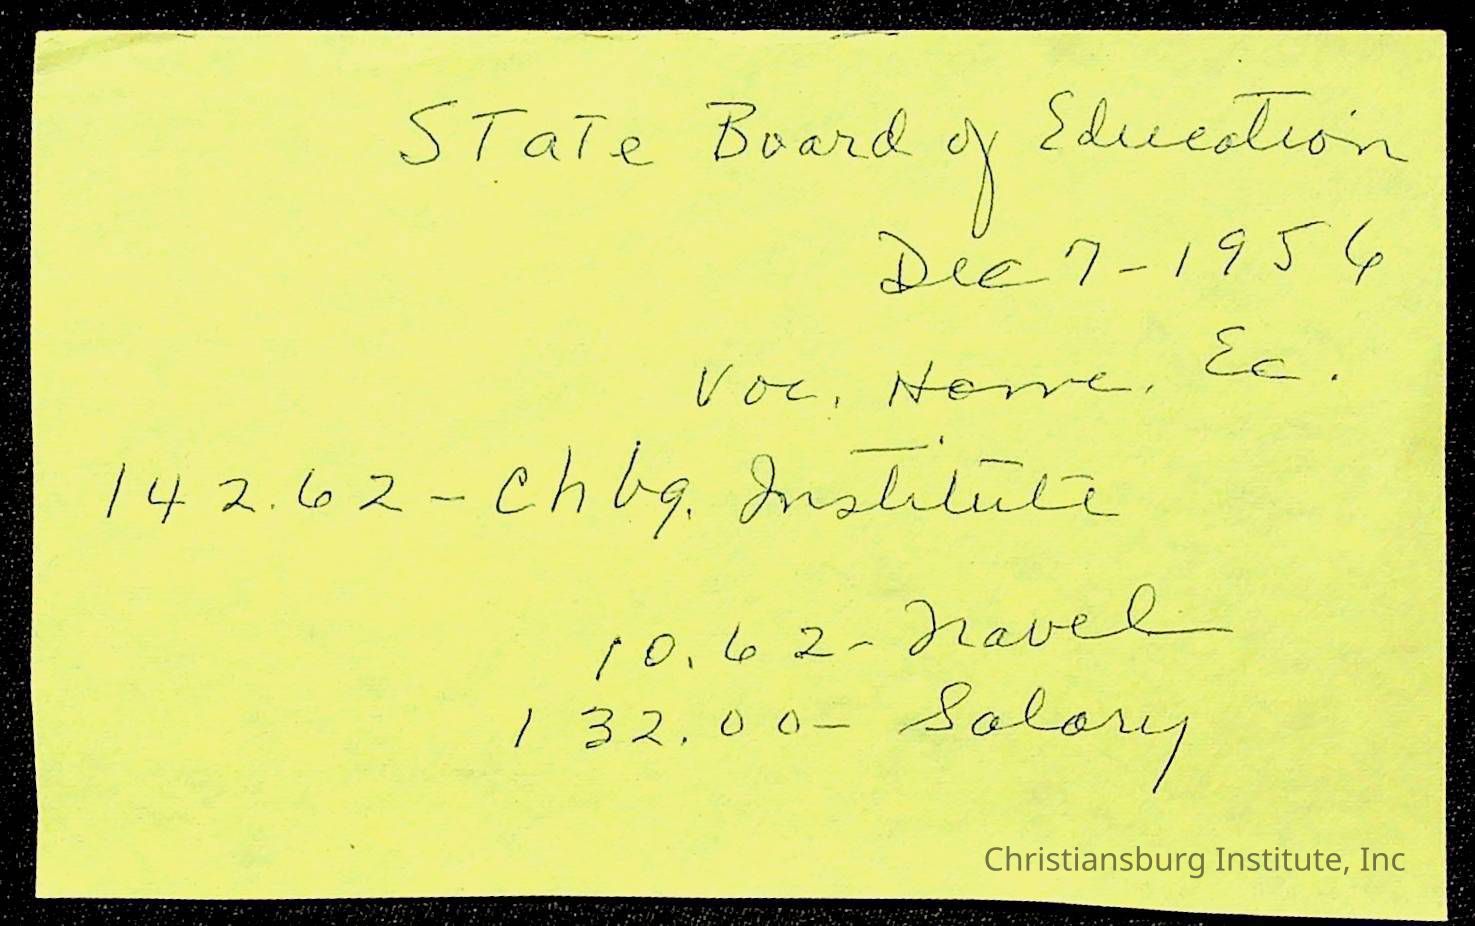 State Board of Education
Dec 7-1956
Voc. Home. Ec.
142.62 - Chbg. Institute
10.62 - Travel
132.00 - Salary
Christiansburg Institute, Inc